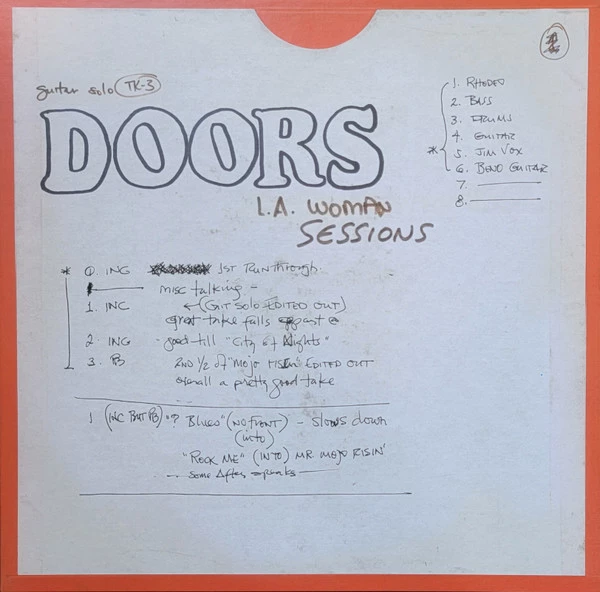 guitar solo TK-3
DOORS
L.A. WOMAN
SESSIONS
1. RHODES
2. BASS
3. DRUMS
4. GUITAR
* 5. JIM VOX
6. BEND GUITAR
7. ———
8. ———
* 0. ING 1ST Run through.
misc talking -
1. INC ← (GIT SOLO EDITED OUT)
great take falls apart @
2. ING - good till "City of Nights"
3. PB 2ND 1/2 of "MOJO RISEN" EDITED OUT
overall a pretty good take
1 (INC BUT PB) "? Blues" (NO FRONT) - slows down
(into)
"ROCK ME" (INTO) MR MOJO RISIN'
-- some After speaks ——